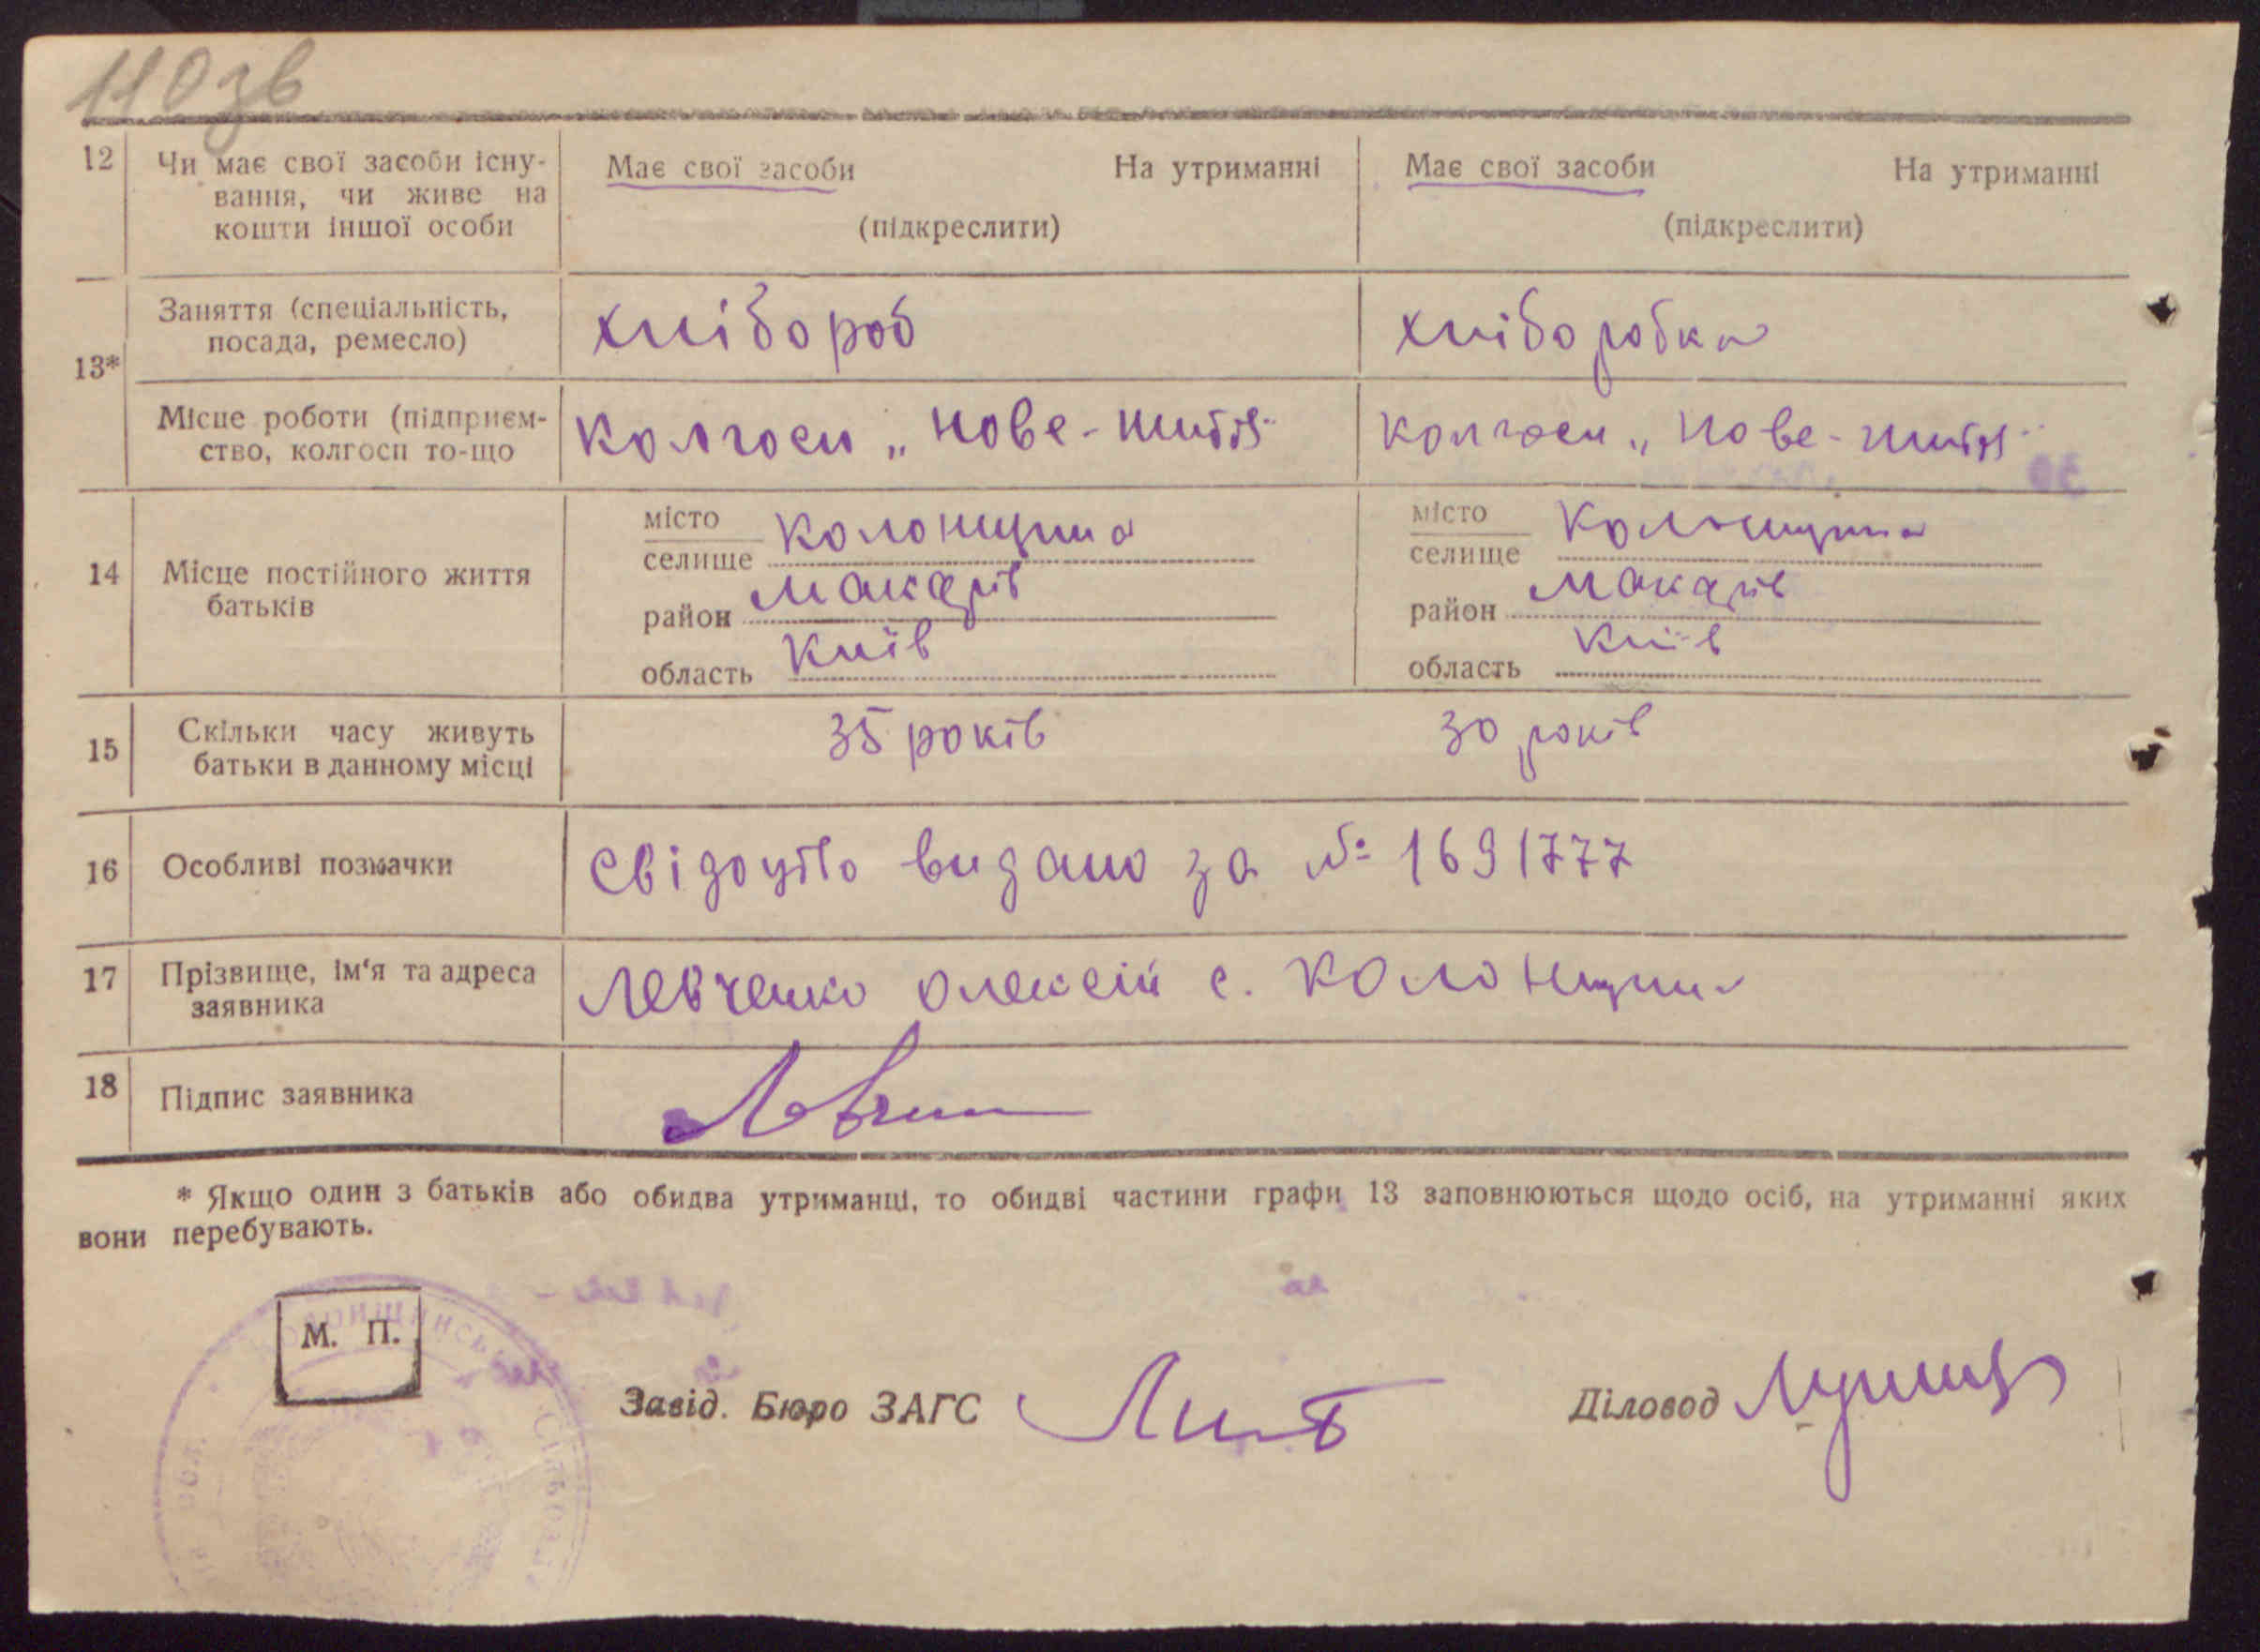 110зв
12 Чи має свої засоби існу- Має свої засоби На утриманні Має свої засоби На утриманні
вання, чи живе на
кошти іншої особи (підкреслити) (підкреслити)
13* Заняття (спеціальність, хлібороб хліборобка
посада, ремесло)
Місце роботи (підприєм- колгосп „Нове-життя" колгосп „Нове-життя"
ство, колгосп то-що
місто Колонщина місто Колонщина
селище селище
14 Місце постійного життя
батьків
район Макарів район Макарів
область Київ область Київ
15 Скільки часу живуть 35 років 30 років
батьки в данному місці
16 Особливі позначки Свідоцтво видано за № 1691777
17 Прізвище, ім‘я та адреса Левченко Олексій с. Колонщина
заявника
18 Підпис заявника
* Якщо один з батьків або обидва утриманці, то обидві частини графи 13 заповнюються щодо осіб, на утриманні яких
вони перебувають.
М. П.
Завід. Бюро ЗАГС Діловод